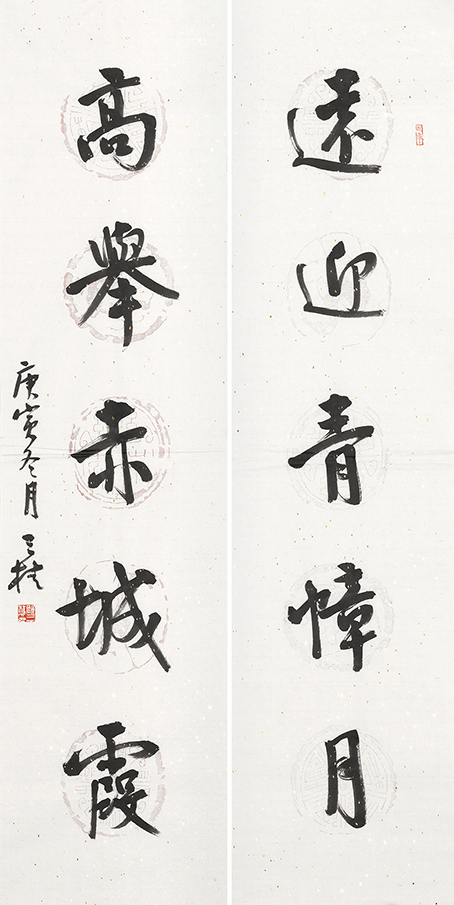 遠迎青幛月
高舉赤城霞
庚寅冬月三桂